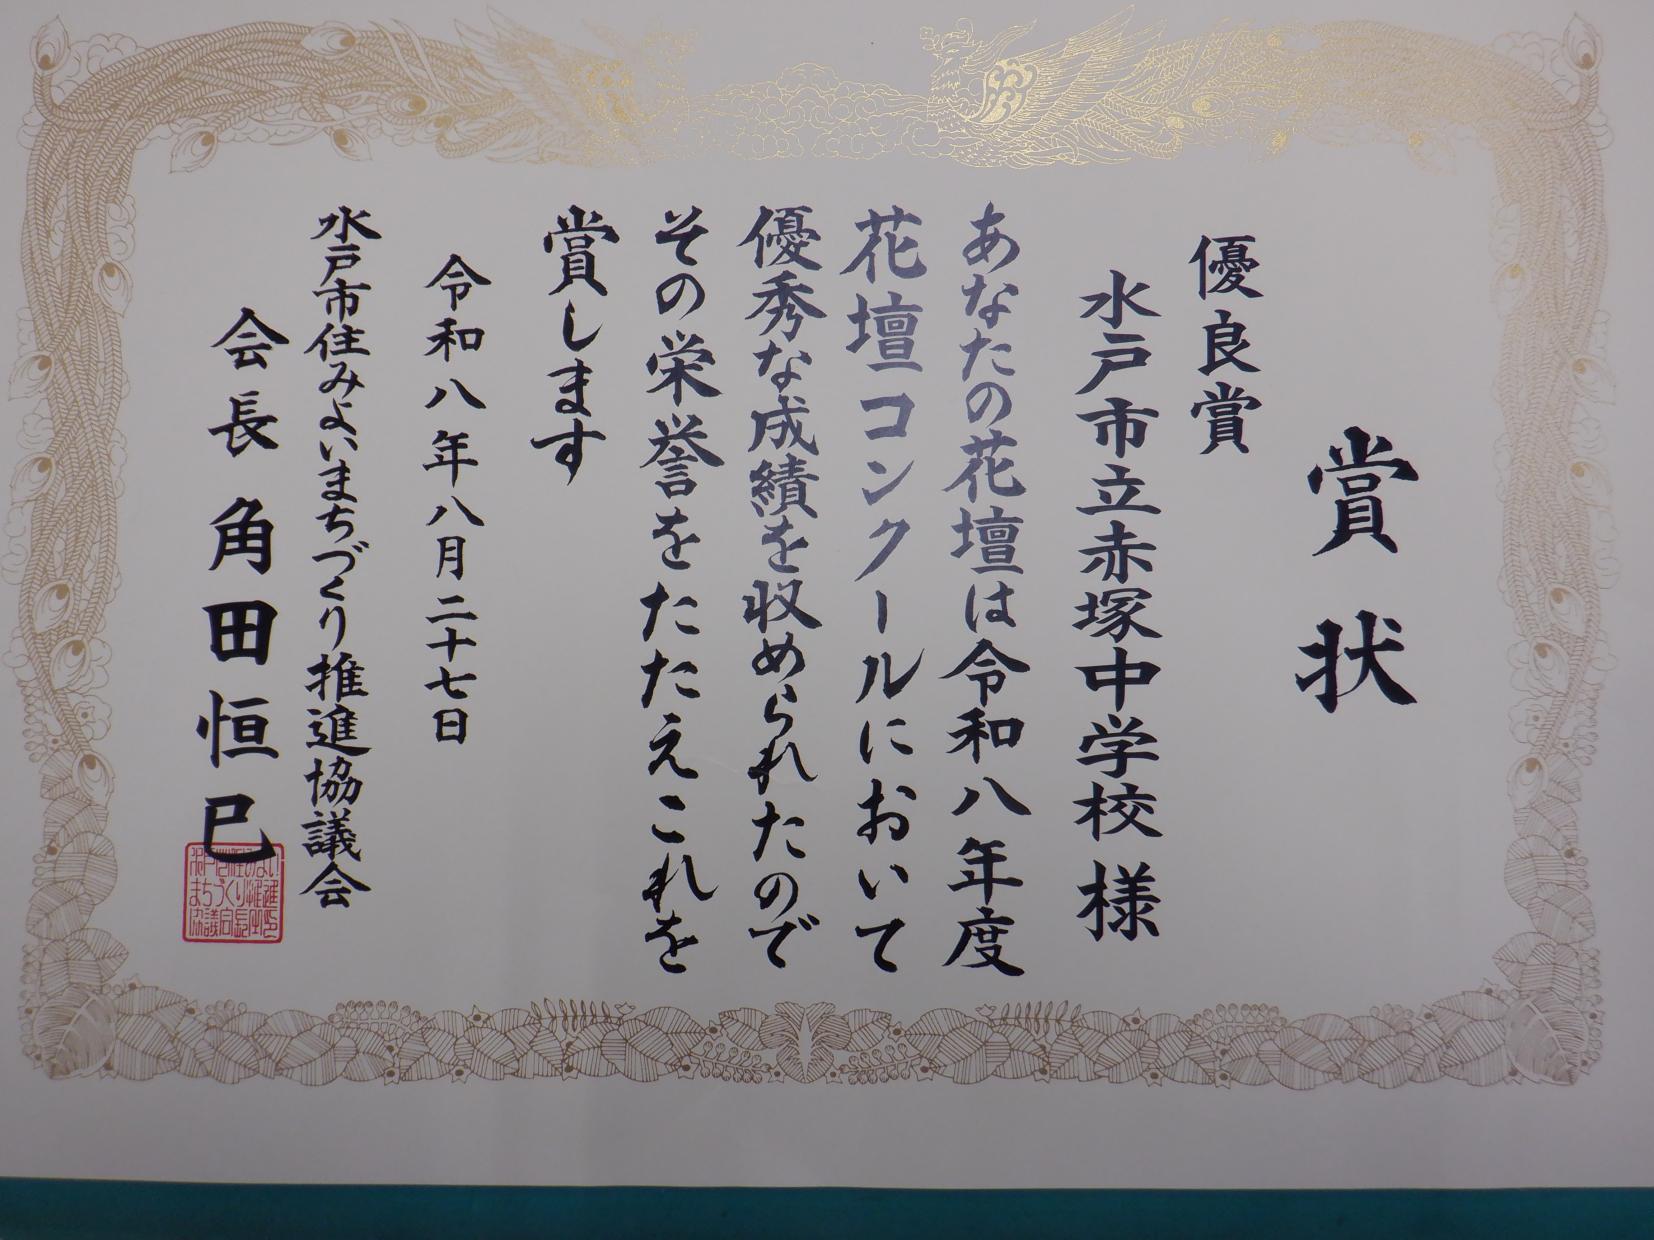 賞状
優良賞
水戸市立赤塚中学校 様
あなたの花壇は令和八年度
花壇コンクールにおいて
優秀な成績を収められたので
その栄誉をたたえこれを
賞します
令和八年八月二十七日
水戸市住みよいまちづくり推進協議会
会長 角田恒巳